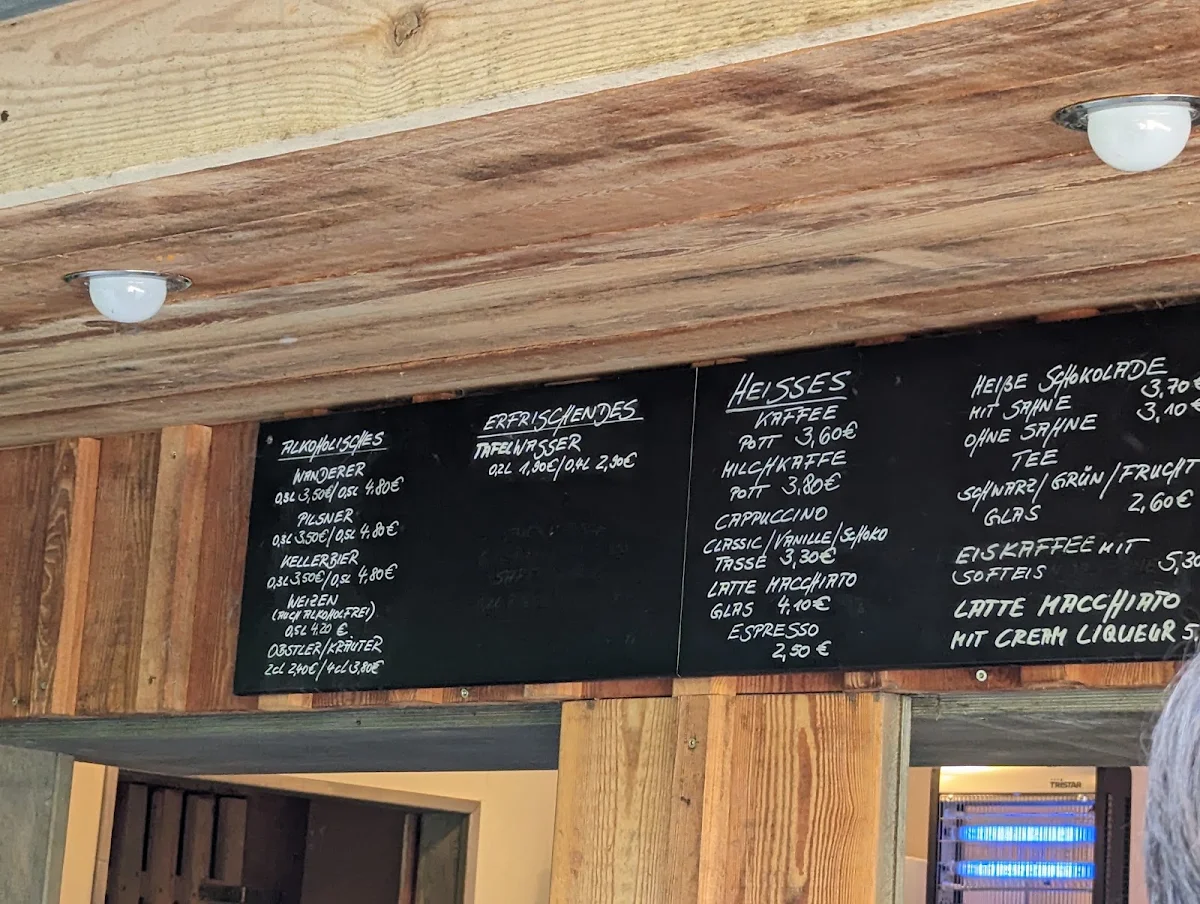 ALKOHOLISCHES
WANDERER
0,3L 3,50€/0,5L 4,80€
PILSNER
0,3L 3,50€/0,5L 4,80€
KELLERBIER
0,3L 3,50€/0,5L 4,80€
WEIZEN
(AUCH ALKOHOLFREI)
0,5L 4,20 €
OBSTLER/KRÄUTER
2cl 2,40€/4cl 3,80€
ERFRISCHENDES
TAFELWASSER
0,2L 1,90€/0,4L 2,90€
HEISSES
KAFFEE
POTT 3,60€
MILCHKAFFE
POTT 3,80€
CAPPUCCINO
CLASSIC/VANILLE/SCHOKO
TASSE 3,30€
LATTE MACCHIATO
GLAS 4,10€
ESPRESSO
2,50 €
HEIßE SCHOKOLADE
MIT SAHNE 3,70€
OHNE SAHNE 3,10€
TEE
SCHWARZ/GRÜN/FRUCHT
GLAS 2,60€
EISKAFFEE MIT
SOFTEIS 5,30
LATTE MACCHIATO
MIT CREAM LIQUEUR 5,
TRISTAR